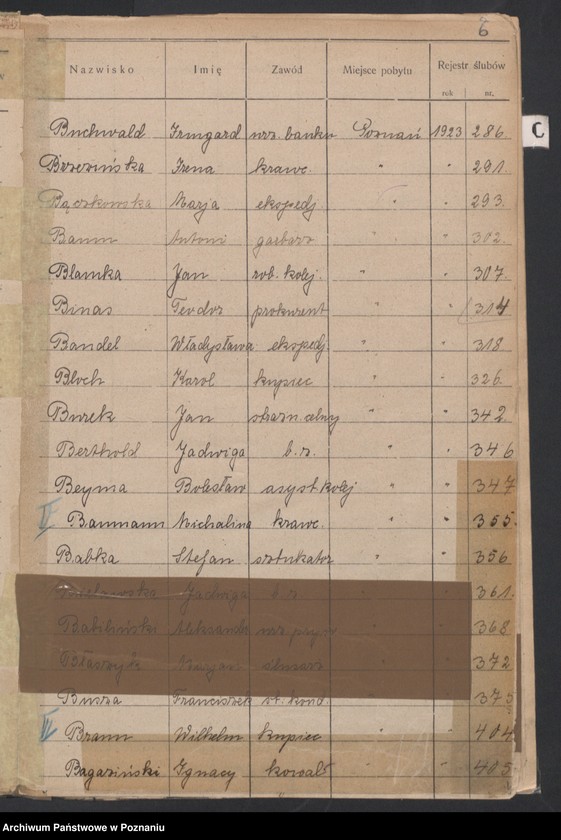 6
Nazwisko Imię Zawód Miejsce pobytu Rejestr ślubów
rok nr.
Buchwald Irmgard urz. banku Poznań 1923 286.
C
Brzezińska Irena krawc. " " 291.
Bączkowska Marja ekspedj. " " 293.
Baum Antoni garbarz " " 302.
Blamka Jan rob. kolej. " " 307.
Binas Teodor prokurent " " 314
Bandel Władysława ekspedj. " " 318
Bloch Karol kupiec " " 326.
Burek Jan strażn. celny " " 342.
Berthold Jadwiga b. z. " " 346
Beyma Bolesław asyst kolej " " 347
II Baumann Michalina krawc. " " 355.
Babka Stefan sztukator " " 356
Jadwiga b. z. " " 361.
Babiliński Aleksander urz. " " 368
Błaszyk Marjan ślusarz " " 372
Busza Franciszek st. kond. " " 375
II Braun Wilhelm kupiec " " 404
Bagaziński Ignacy kowal " " 405
Archiwum Państwowe w Poznaniu